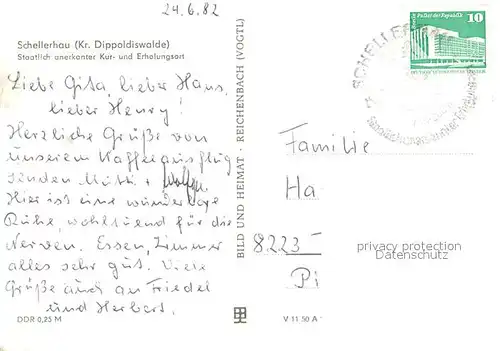 24.6.82
Schellerhau (Kr. Dippoldiswalde)
Staatlich anerkannter Kur- und Erholungsort
Liebe Gita, lieber Hans,
lieber Henry!
Herzliche Grüße von
unserem Kaffeeausflug
senden Mutti +
Hier ist eine wunderbare
Ruhe, wohltuend für die
Nerven. Essen, Zimmer
alles sehr gut. Viele
Grüße auch an Friedel
und Herbert.
DDR 0,25 M
BILD UND HEIMAT · REICHENBACH (VOGTL)
V 11 50 A
Palast der Republik
10
SCHELLER
Familie
Ha
8223
Pi
privacy protection
Datenschutz